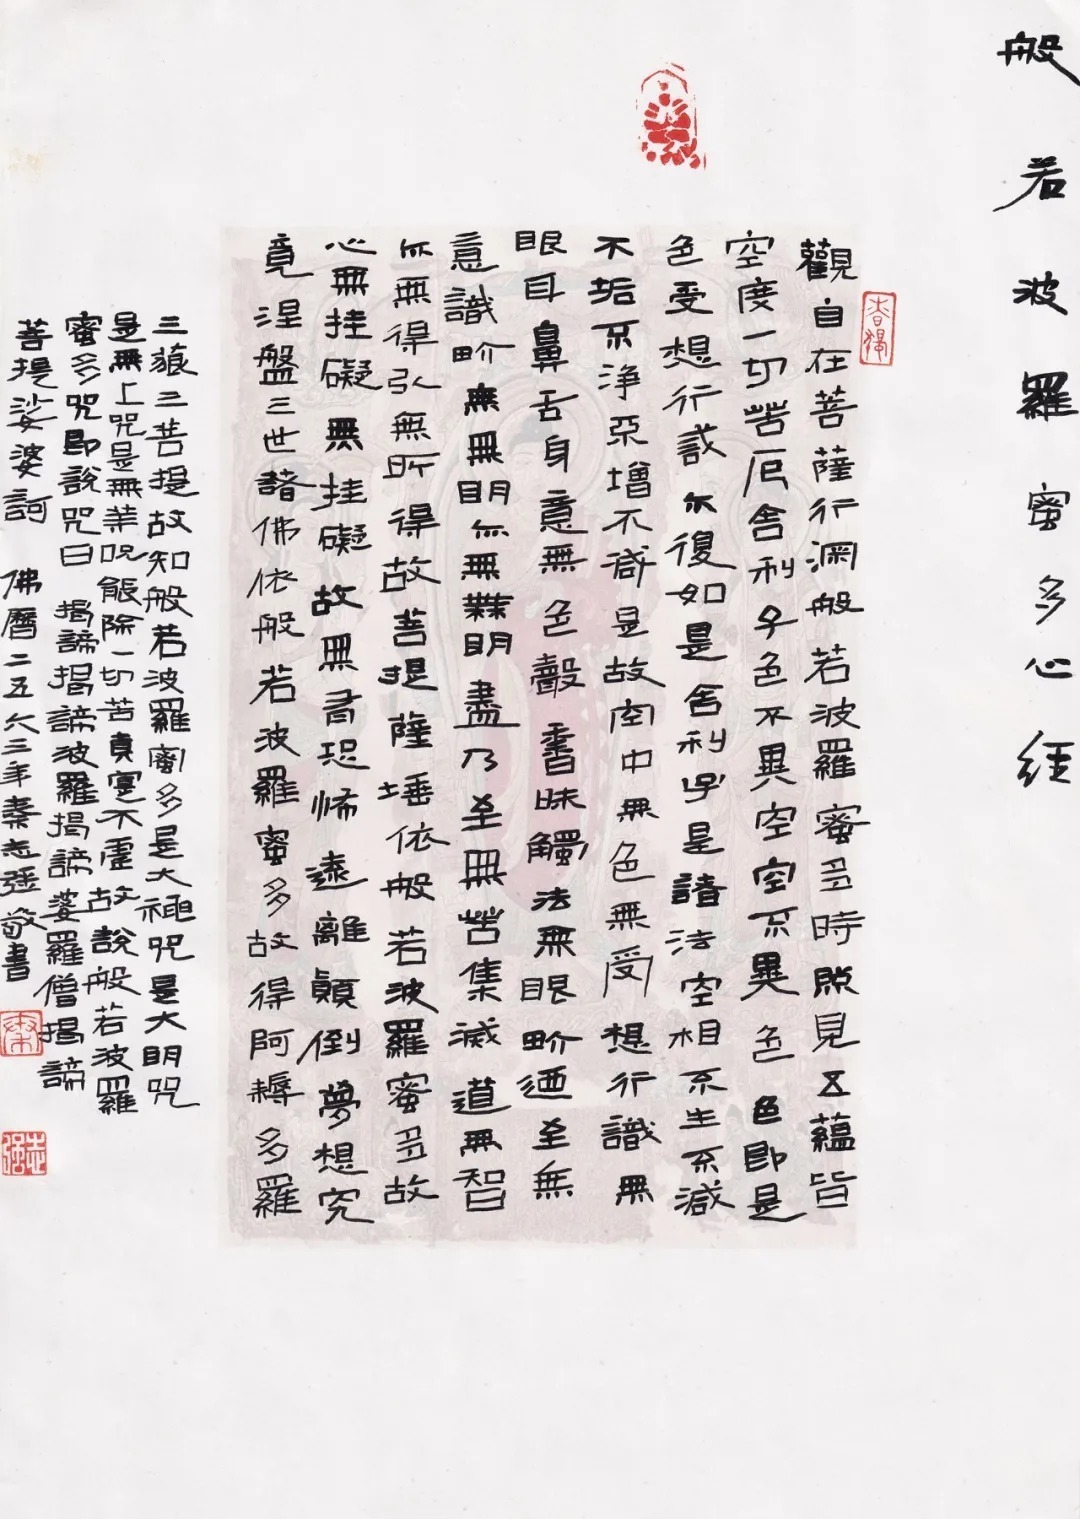 般若波羅蜜多心經
觀自在菩薩行深般若波羅蜜多時照見五蘊皆
空度一切苦厄舍利子色不異空空不異色色即是
色受想行識亦復如是舍利子是諸法空相不生不滅
不垢不淨不增不減是故空中無色無受想行識無
眼耳鼻舌身意無色聲香味觸法無眼界迺至無
意識界無無明亦無無明盡乃至無苦集滅道無智
亦無得以無所得故菩提薩埵依般若波羅蜜多故
心無挂礙無挂礙故無有恐怖遠離顛倒夢想究
竟涅盤三世諸佛依般若波羅蜜多故得阿耨多羅
三藐三菩提故知般若波羅蜜多是大神咒是大明咒
是無上咒是無等咒能除一切苦真實不虛故說般若波羅
蜜多咒即說咒曰 揭諦揭諦波羅揭諦婆羅僧揭諦
菩提娑婆訶 佛曆二五六三年秦志強敬書
秦
志強